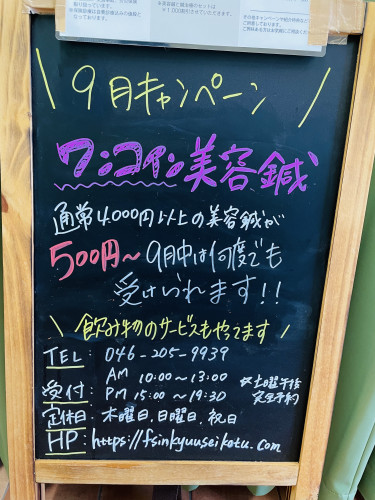 9月キャンペーン
ワンコイン美容鍼
通常4,000円以上の美容鍼が
500円〜9月中は何度でも
受けられます!!
\ 飲み物のサービスもやってます /
TEL: 046-205-9939
受付: AM 10:00〜13:00
PM 15:00〜19:30
※土曜午後
完全予約
定休日: 木曜日,日曜日,祝日
HP: https://fsinkyuuseikotu.com